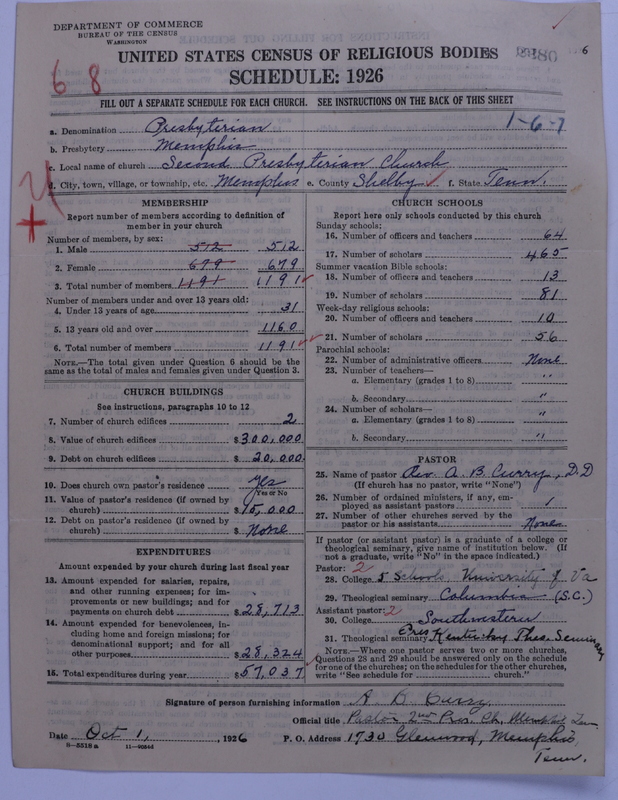 DEPARTMENT OF COMMERCE
BUREAU OF THE CENSUS
WASHINGTON
UNITED STATES CENSUS OF RELIGIOUS BODIES
SCHEDULE: 1926
6 8
FILL OUT A SEPARATE SCHEDULE FOR EACH CHURCH. SEE INSTRUCTIONS ON THE BACK OF THIS SHEET
1-6-7
a. Denomination Presbyterian
b. Presbytery Memphis
c. Local name of church Second Presbyterian Church
d. City, town, village, or township, etc. Memphis e. County Shelby f. State Tenn.
MEMBERSHIP
Report number of members according to definition of
member in your church
Number of members, by sex:
1. Male 512 512
2. Female 679 679
3. Total number of members 1191 1191
Number of members under and over 13 years old:
4. Under 13 years of age 31
5. 13 years old and over 1160
6. Total number of members 1191
NOTE.—The total given under Question 6 should be
same as the total of males and females given under Question 3.
CHURCH BUILDINGS
See instructions, paragraphs 10 to 12
7. Number of church edifices 2
8. Value of church edifices $300,000
9. Debt on church edifices $ 20,000
10. Does church own pastor's residence yes
Yes or No
11. Value of pastor's residence (if owned by
church) $15,000
12. Debt on pastor's residence (if owned by
church) $ None
EXPENDITURES
Amount expended by your church during last fiscal year
13. Amount expended for salaries, repairs,
and other running expenses; for im-
provements or new buildings; and for
payments on church debt $28,713
14. Amount expended for benevolences, in-
cluding home and foreign missions; for
denominational support; and for all
other purposes $28,324
15. Total expenditures during year $57,037
CHURCH SCHOOLS
Report here only schools conducted by this church
Sunday schools:
16. Number of officers and teachers 64
17. Number of scholars 465
Summer vacation Bible schools:
18. Number of officers and teachers 13
19. Number of scholars 81
Week-day religious schools:
20. Number of officers and teachers 10
21. Number of scholars 56
Parochial schools:
22. Number of administrative officers None
23. Number of teachers—
a. Elementary (grades 1 to 8) "
b. Secondary "
24. Number of scholars—
a. Elementary (grades 1 to 8) "
b. Secondary "
PASTOR
25. Name of pastor Rev. A. B. Curry, D.D
(If church has no pastor, write "None")
26. Number of ordained ministers, if any, em-
ployed as assistant pastors 1
27. Number of other churches served by the
pastor or his assistants None
If pastor (or assistant pastor) is a graduate of a college or
theological seminary, give name of institution below. (If
not a graduate, write "No" in the space indicated.)
Pastor: 2
28. College 5 Schools, University of Va
29. Theological seminary Columbia (S.C.)
Assistant pastor: 2
30. College Southwestern
31. Theological seminary Pres Kentucky Theo. Seminary
NOTE.—Where one pastor serves two or more churches,
Questions 28 and 29 should be answered only on the schedule
for one of the churches; on the schedules for the other churches,
write "See schedule for church."
Signature of person furnishing information A B Curry
Official title Pastor 2nd Pres. Ch, Memphis Ten
Date Oct 1, 1926 P. O. Address 1730 Glenwood, Memphis,
Tenn.
8-5518a 11-9064d